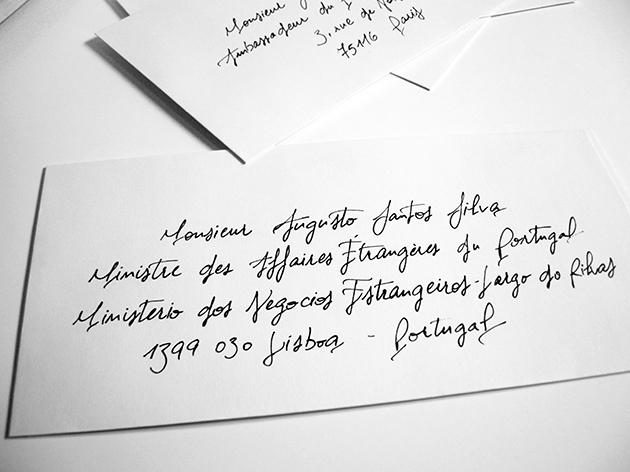 Monsieur
Ambassadeur du
3, rue de
75116 Paris
Monsieur Augusto Santos Silva
Ministre des Affaires Étrangères du Portugal
Ministerio dos Negocios Estrangeiros-Largo do Rilvas
1399 030 Lisboa - Portugal